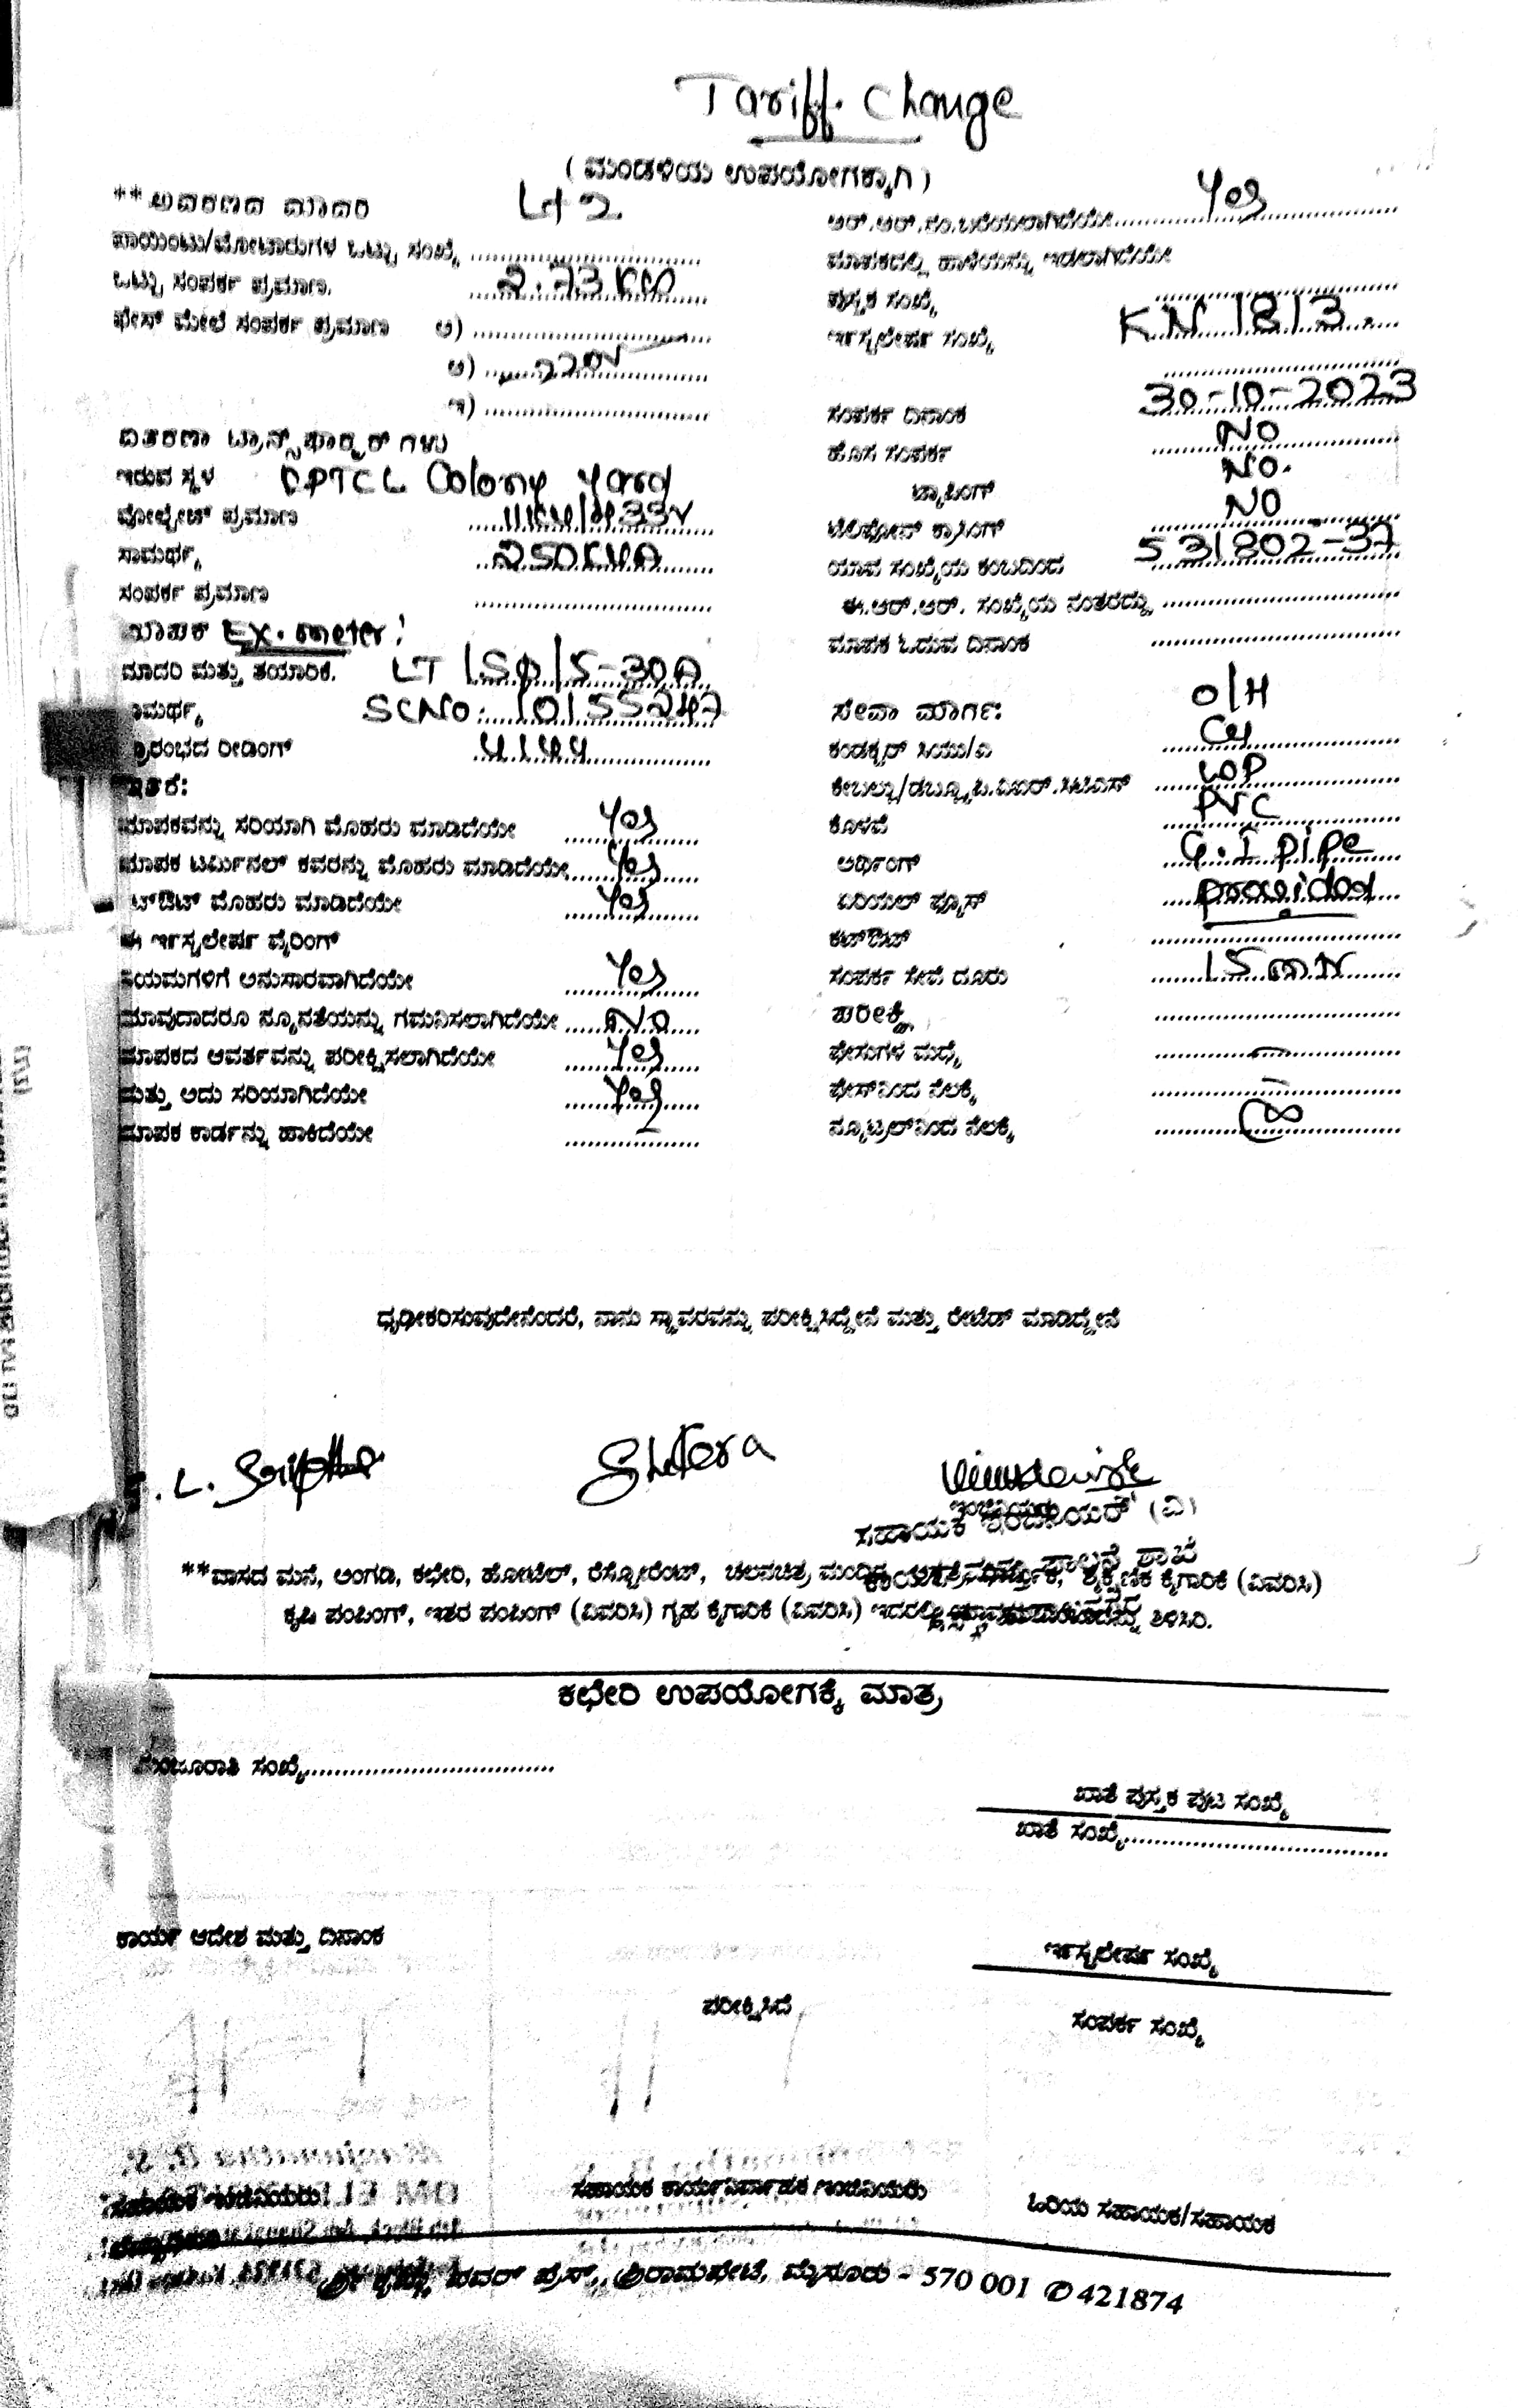 Tariff. Change
(ಮಂಡಳಿಯ ಉಪಯೋಗಕ್ಕಾಗಿ)
**ಆವರಣದ ಮಾದರಿ Lt 2
ಪಾಯಿಂಟು/ಮೋಟಾರುಗಳ ಒಟ್ಟು ಸಂಖ್ಯೆ
ಒಟ್ಟು ಸಂಪರ್ಕ ಪ್ರಮಾಣ. 2.73 KW
ಫೇಸ್ ಮೇಲೆ ಸಂಪರ್ಕ ಪ್ರಮಾಣ ಅ)
ಆ)
ಇ)
ವಿತರಣಾ ಟ್ರಾನ್ಸ್‌ಫಾರ್ಮರ್ ಗಳು
ಇರುವ ಸ್ಥಳ Colony Yard
ವೋಲ್ಟೇಜ್ ಪ್ರಮಾಣ
ಸಾಮರ್ಥ್ಯ 250 KVA
ಸಂಪರ್ಕ ಪ್ರಮಾಣ
ಮಾಪಕ Ex. meter:
ಮಾದರಿ ಮತ್ತು ತಯಾರಿಕೆ. LT 1SΦ/5-30A
SLNO: 10155247
ಪ್ರಾರಂಭದ ರೀಡಿಂಗ್
ಇತರೆ:
ಮಾಪಕವನ್ನು ಸರಿಯಾಗಿ ಮೊಹರು ಮಾಡಿದೆಯೇ Yes
ಮಾಪಕ ಟರ್ಮಿನಲ್ ಕವರನ್ನು ಮೊಹರು ಮಾಡಿದೆಯೇ Yes
ಕಟ್‌ಔಟ್ ಮೊಹರು ಮಾಡಿದೆಯೇ Yes
ಈ ಇನ್ಸ್ಟಲೇಷನ್ ವೈರಿಂಗ್
ನಿಯಮಗಳಿಗೆ ಅನುಸಾರವಾಗಿದೆಯೇ Yes
ಯಾವುದಾದರೂ ನ್ಯೂನತೆಯನ್ನು ಗಮನಿಸಲಾಗಿದೆಯೇ NO
ಮಾಪಕದ ಆವರ್ತವನ್ನು ಪರೀಕ್ಷಿಸಲಾಗಿದೆಯೇ Yes
ಮತ್ತು ಅದು ಸರಿಯಾಗಿದೆಯೇ Yes
ಮಾಪಕ ಕಾರ್ಡನ್ನು ಹಾಕಿದೆಯೇ
ಆರ್.ಆರ್.ನಂ.ಬರೆಯಲಾಗಿದೆಯೇ Yes
ಮಾಪಕದಲ್ಲಿ ಹಾಳೆಯನ್ನು ಇಡಲಾಗಿದೆಯೇ
ಪುಸ್ತಕ ಸಂಖ್ಯೆ
ಇನ್ಸ್ಟಲೇಷನ್ ಸಂಖ್ಯೆ KN 1813.
ಸಂಪರ್ಕ ದಿನಾಂಕ 30-10-2023
ಹೊಸ ಸಂಪರ್ಕ NO
ಟ್ಯಾಪಿಂಗ್ NO.
ಟೆಲಿಫೋನ್ ಕ್ರಾಸಿಂಗ್ NO
ಯಾವ ಸಂಖ್ಯೆಯ ಕಂಬದಿಂದ 531802-37
ಈ.ಆರ್.ಆರ್. ಸಂಖ್ಯೆಯ ನಂತರದ್ದು
ಮಾಪಕ ಓದುವ ದಿನಾಂಕ
ಸೇವಾ ಮಾರ್ಗ: O/H
ಕಂಡಕ್ಟರ್ ಸಿಯು/ಎ Cu
ಕೇಬಲ್/ಡಬ್ಲ್ಯೂ.ಪಿ.ವಿಐಆರ್.ಸಿಟಿಎಸ್ WP
ಕೊಳವೆ PVC
ಅರ್ಥಿಂಗ್ G.I pipe
ಏರಿಯಲ್ ಫ್ಯೂಸ್ provided
ಕಟ್‌ಔಟ್
ಸಂಪರ್ಕ ಸೇವೆ ದೂರು
ಪರೀಕ್ಷೆ
ಫೇಸುಗಳ ಮಧ್ಯೆ
ಫೇಸ್‌ನಿಂದ ನೆಲಕ್ಕೆ
ನ್ಯೂಟ್ರಲ್‌ನಿಂದ ನೆಲಕ್ಕೆ ∞
ಧೃಢೀಕರಿಸುವುದೇನೆಂದರೆ, ನಾನು ಸ್ಥಾವರವನ್ನು ಪರೀಕ್ಷಿಸಿದ್ದೇನೆ ಮತ್ತು ರೇಟೆಡ್ ಮಾಡಿದ್ದೇನೆ
ಸಹಾಯಕ ಇಂಜಿನಿಯರ್ (ವಿ)
**ವಾಸದ ಮನೆ, ಅಂಗಡಿ, ಕಛೇರಿ, ಹೋಟೆಲ್, ರೆಸ್ಟೋರೆಂಟ್, ಚಲನಚಿತ್ರ ಮಂದಿರ, ಶೈಕ್ಷಣಿಕ ಕೈಗಾರಿಕೆ (ವಿವರಿಸಿ)
ಕೃಷಿ ಪಂಪಿಂಗ್, ಇತರ ಪಂಪಿಂಗ್ (ವಿವರಿಸಿ) ಗೃಹ ಕೈಗಾರಿಕೆ (ವಿವರಿಸಿ) ಇದರಲ್ಲಿ ತಿಳಿಸಿರಿ.
ಕಛೇರಿ ಉಪಯೋಗಕ್ಕೆ ಮಾತ್ರ
ಮಂಜೂರಾತಿ ಸಂಖ್ಯೆ
ಖಾತೆ ಪುಸ್ತಕ ಪುಟ ಸಂಖ್ಯೆ
ಖಾತೆ ಸಂಖ್ಯೆ
ಕಾರ್ಯ ಆದೇಶ ಮತ್ತು ದಿನಾಂಕ
ಇನ್ಸ್ಟಲೇಷನ್ ಸಂಖ್ಯೆ
ಪರೀಕ್ಷಿಸಿದೆ
ಸಂಪರ್ಕ ಸಂಖ್ಯೆ
ಸಹಾಯಕ ಇಂಜಿನಿಯರು
ಸಹಾಯಕ ಕಾರ್ಯನಿರ್ವಾಹಕ ಇಂಜಿನಿಯರು
ಹಿರಿಯ ಸಹಾಯಕ/ಸಹಾಯಕ
ಪವರ್ ಪ್ರೆಸ್, ಶ್ರೀರಾಮಪೇಟೆ, ಮೈಸೂರು - 570 001 ✆ 421874